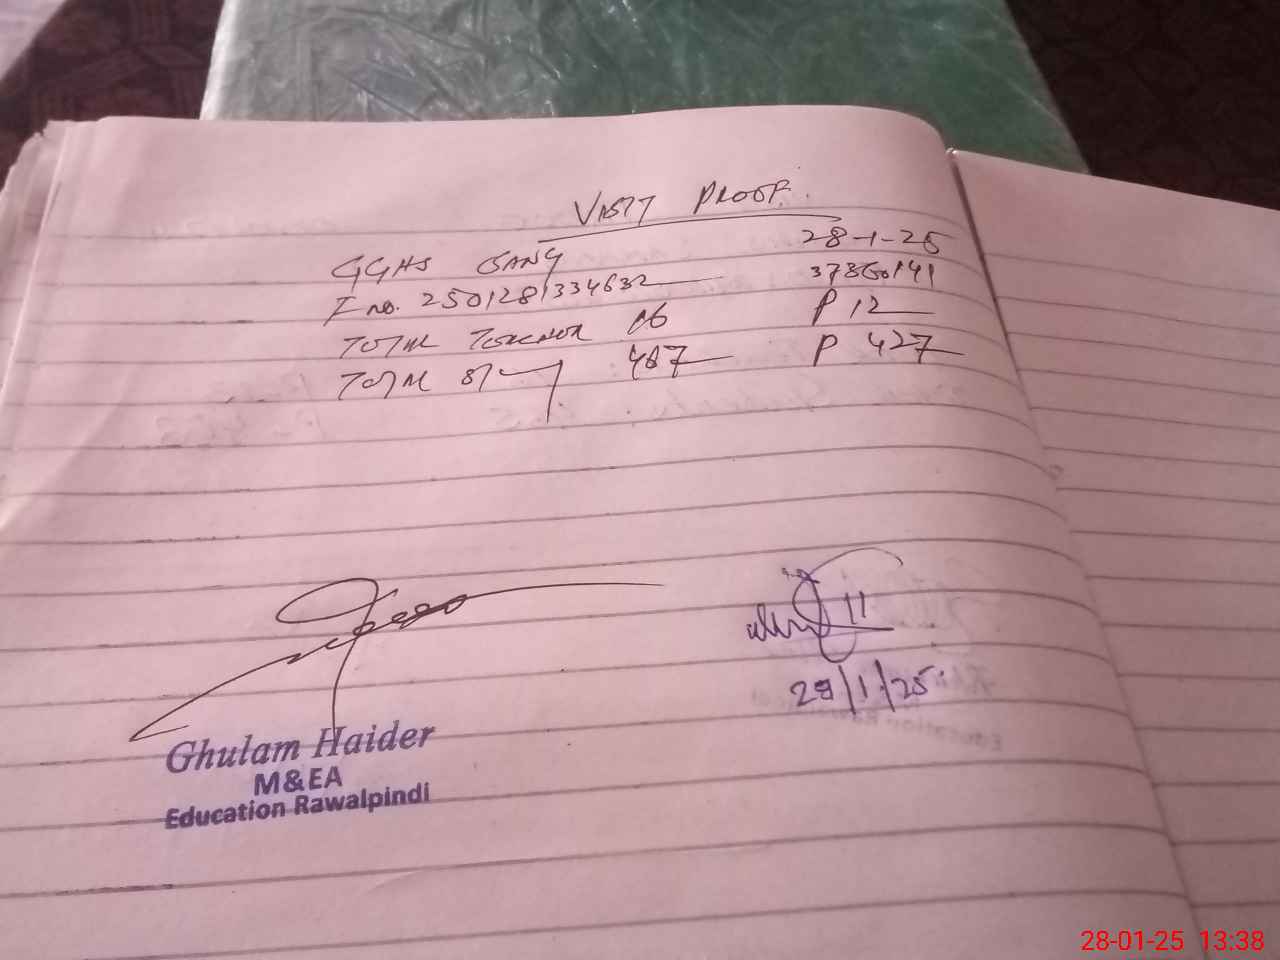 VISIT PROOF.
GGHS
28-1-25
F no. 2501281334632
TOTAL TEACHER 16 P 12
TOTAL ST 487 P 427
Ghulam Haider
M&EA
Education Rawalpindi
28/1/25
28-01-25 13:38